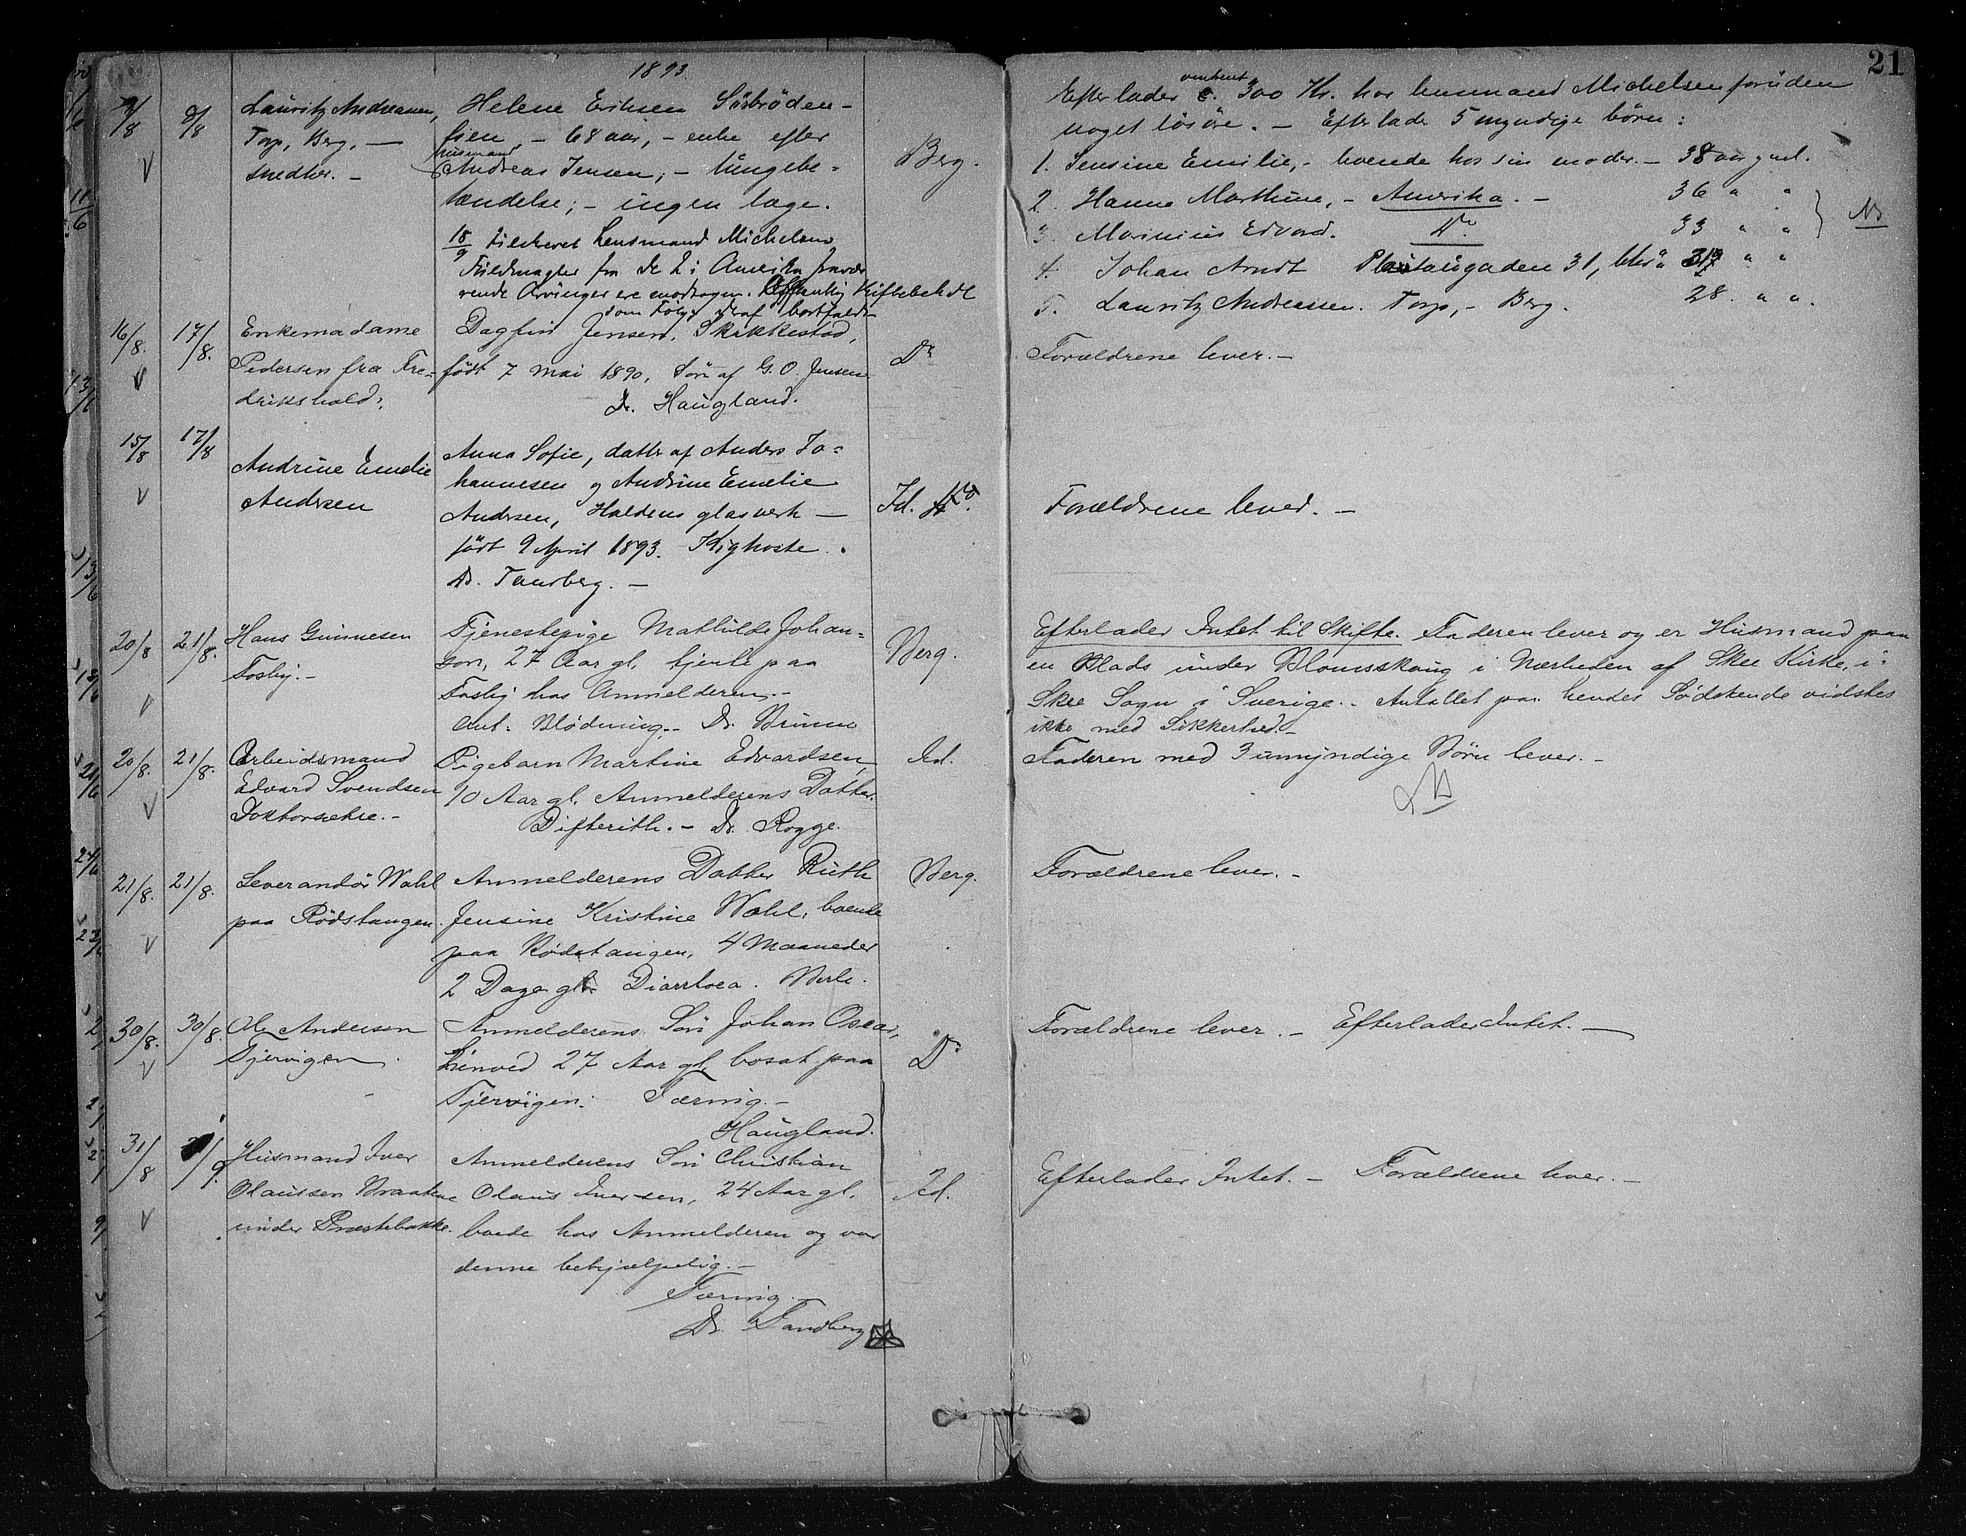 21
1893
7/8 8/8 Lauritz Andreassen, Helene Eriksen Sörbröden-
Torp, Berg, — lien, - 68 aar, - enke efter Berg.
snedker. - husmand
Andreas Jensen; - lungebe-
tændelse; - ingen læge.
18/9 Lensmand Michelsen
Fuldmagter fra de 2 i Amerika fravæ-
rende Arvinger ere modtagen. Offentlig Skiftebehdl
som Følge deraf bortfaldt
16/8. 17/8. Enkemadame Dagfin Jensen, Skikkestad, Do
Pedersen fra Fre- födt 7 Mai 1890, Sön af G. O. Jensen
drikshald. Dr. Haugland.
15/8 17/8 Andrine Emelie Anna Sofie, datter af Anders Jo-
Andersen hannesen og Andrine Emelie Id.
Andersen, Haldens glasverk —
født 9 April 1893. Kighoste.
Dr. Tandberg. —
20/8 21/8. Hans Gunnesen Tjenestepige Mathilde Johan- Berg.
Fosby. - son, 27 Aar gl. tjente paa
Fosby hos Anmelderen. -
Ant. Blødning. - Dr. Brunn
20/8. 21/8. Arbeidsmand Pigebarn Martine Edvardsen, Id.
Edvard Svendsen 10 Aar gl. Anmelderens Datter.
Doktorsetre. - Difterith. - Dr. Rogge.
21/8. 21/8. Leverandör Wahl Anmelderens Datter Ruth Berg.
paa Rödstangen. Jensine Kristine Wahl, boende
paa Rödstangen, 4 Maaneder
2 Dage gl. Diarrhoea.
30/8. 30/8. Ole Andersen Anmelderens Sön Johan Oscar, Do
Tjervigen henved 27 Aar gl. bosat paa
Tjervigen. Tæring. -
Haugland.
31/8 1/9. Husmand Iver Anmelderens Sön Christian
Olaussen Braatene Olaus Iversen, 24 Aar gl. Id.
under Præstebakke. boede hos Anmelderen og var
denne behjælpelig. -
Tæring. -
Dr. Tandberg
Efterlader omtrent 300 Kr. hos lensmand Michelsen foruden
noget lösöre. - Efterlader 5 myndige börn:
1. Jensine Emilie, - boende hos sin moder. - 38 aar gml.
2. Hanne Marthine, - Amerika. - 36 " "
3. Marinius Edvard. Do 33 " " } NB
4. Johan Arndt 31, " "
5. Lauritz Andreassen. Torp, - Berg. 28. " "
Forældrene lever. -
Forældrene lever. -
Efterlader Intet til Skifte. Faderen lever og er Husmand paa
en Plads under Blomsskoug i Nærheden af Skee Kirke, i
Skee Sogn i Sverige. - Antallet paa hendes Södskende vidstes
ikke med Sikkerhed. -
Faderen med 3 umyndige Börn lever. -
Forældrene lever. -
Forældrene lever. - Efterlader Intet. —
Efterlader Intet. - Forældrene lever. -